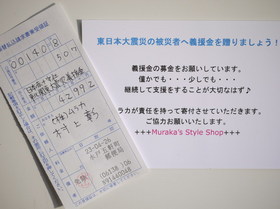 00140 8
507
日本赤十字社
東日本大震災義援金
42992
村上彰
23-04-26
東日本大震災の被災者へ義援金を贈りましょう！
義援金の募金をお願いしています。
僅かでも・・・少しでも・・・
継続して支援をすることが大切なはず♪
ラカが責任を持って寄付させていただきます。
ご協力お願いいたします。
+++Muraka's Style Shop+++